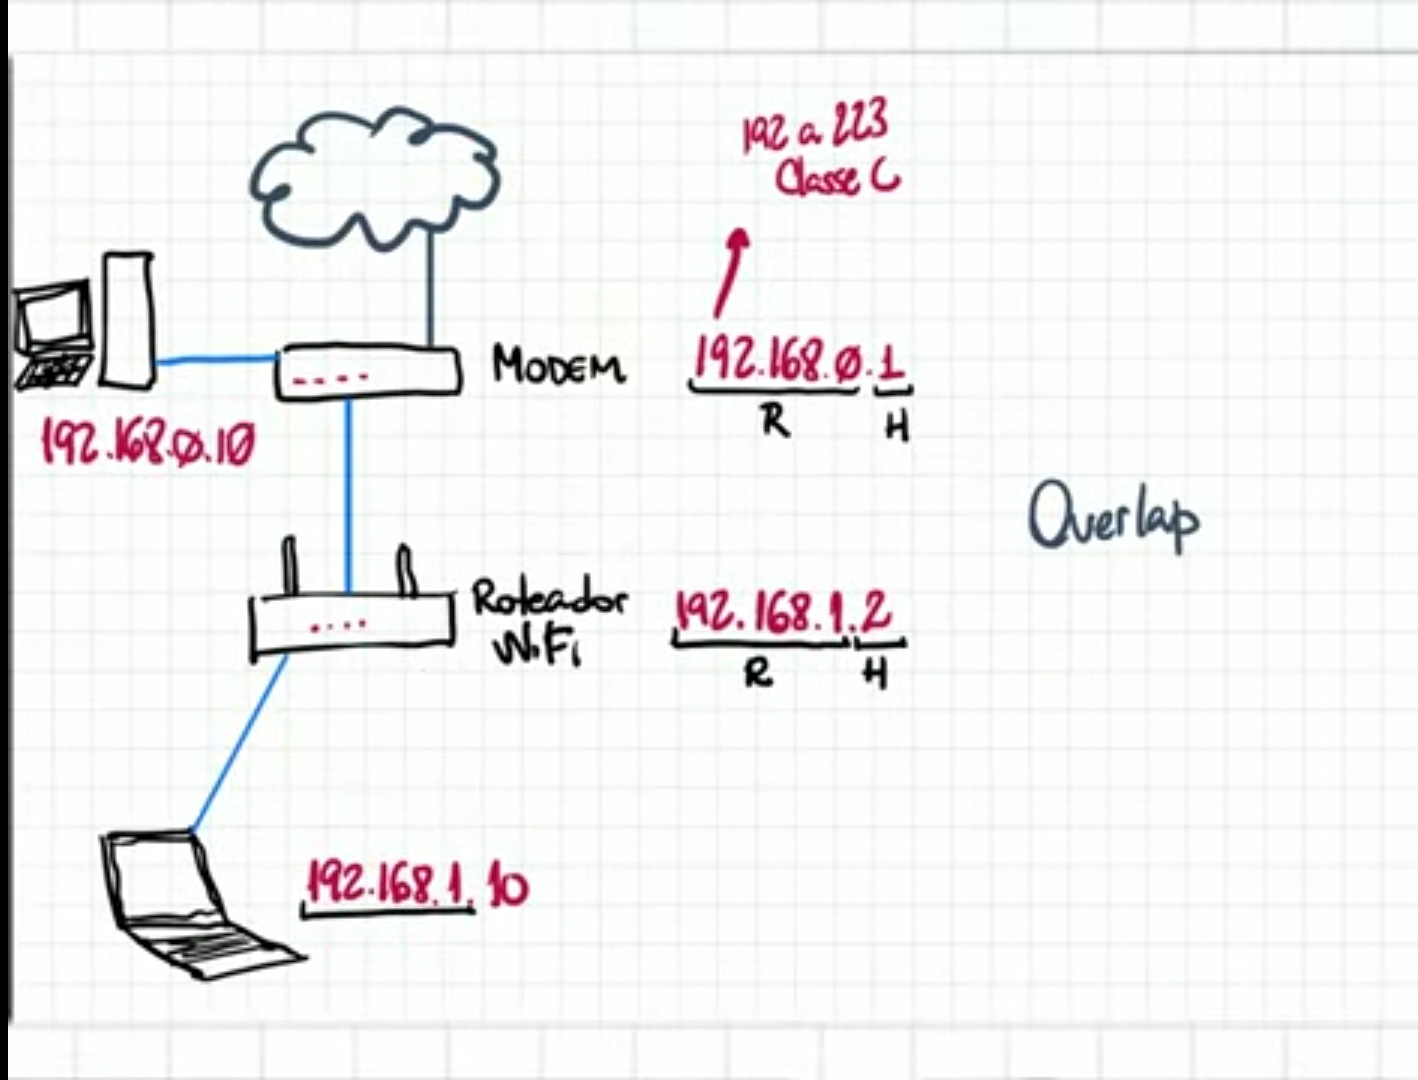 192 a 223
Classe C
MODEM
192.168.0.1
R H
192.168.0.10
Overlap
Roteador
WiFi
192.168.1.2
R H
192.168.1.10